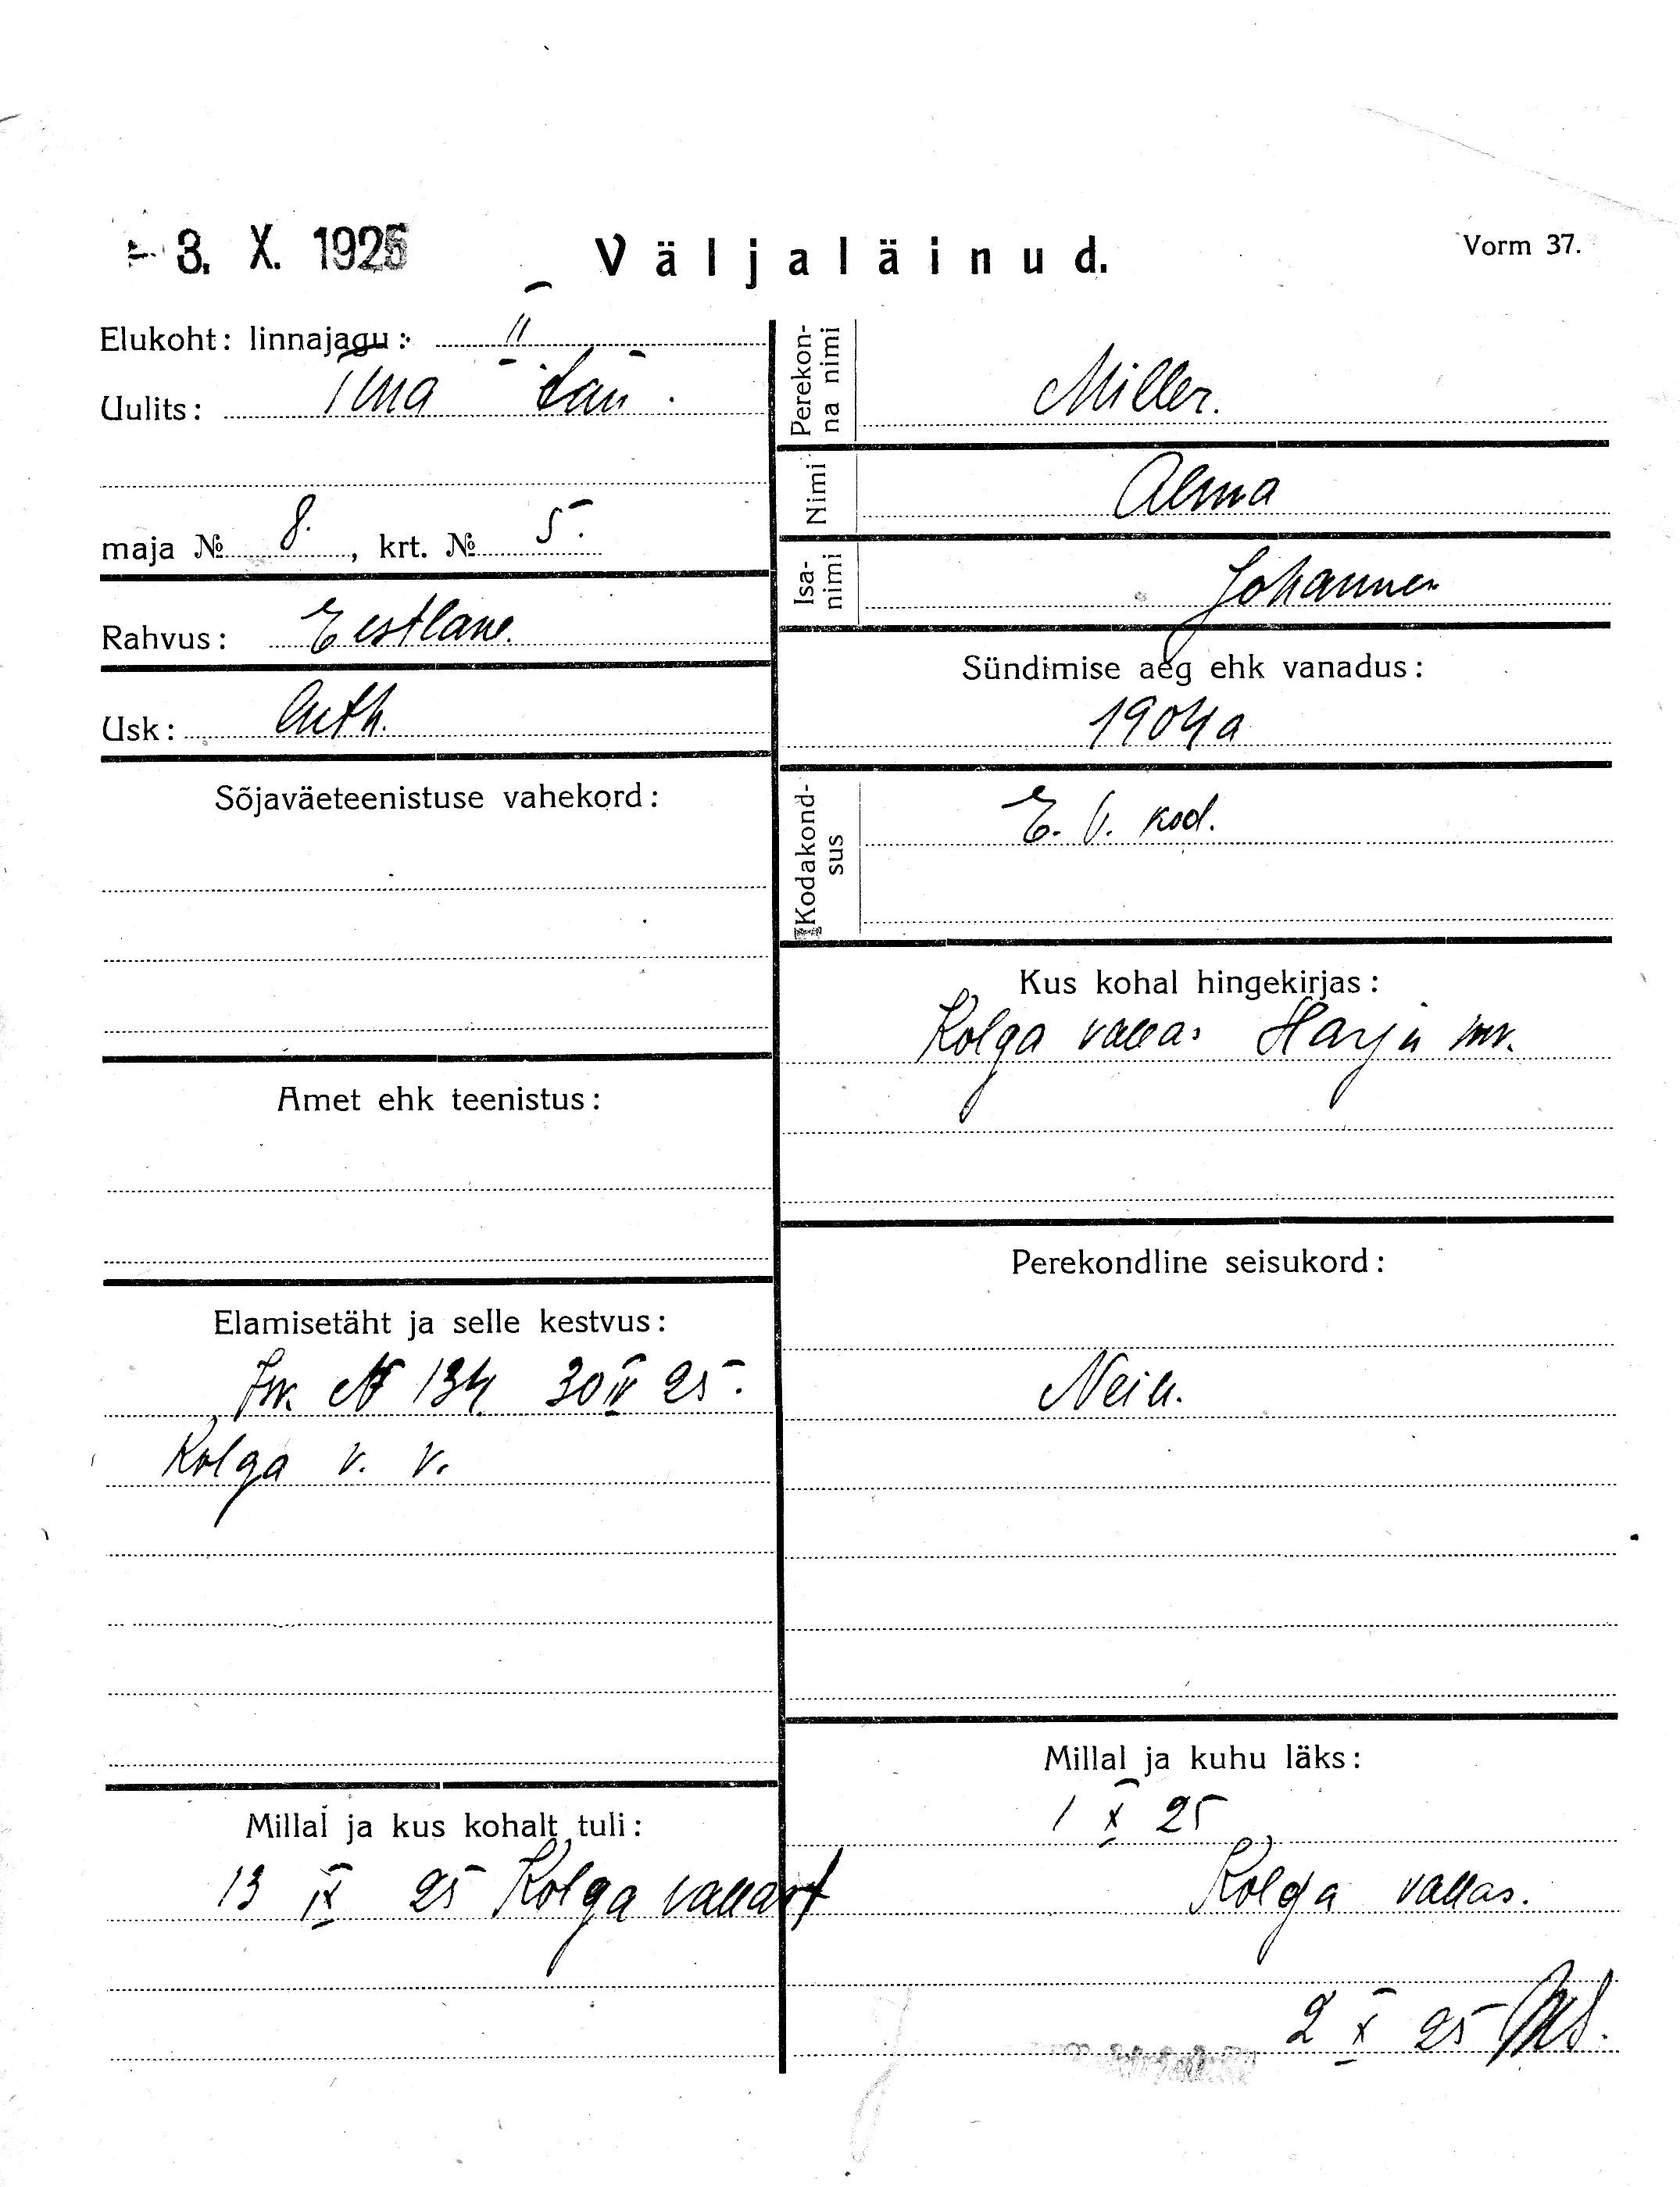 - 3. X. 1925
Väljaläinud.
Vorm 37.
Elukoht: linnajagu: II
Uulits: Tina tän.
maja № 8. , krt. № 5.
Rahvus: Eestlane.
Usk: Luth.
Sõjaväeteenistuse vahekord:
Amet ehk teenistus:
Elamisetäht ja selle kestvus:
Isk. № 134 30 IV 25.
Kolga v. v.
Millal ja kus kohalt tuli:
13 IX 25 Kolga vallast
Perekonna nimi
Miller.
Nimi
Alma
Isanimi
Johannes
Sündimise aeg ehk vanadus:
1904 a
Kodakondsus
E. V. kod.
Kus kohal hingekirjas:
Kolga vallas Harju mk.
Perekondline seisukord:
Neiu.
Millal ja kuhu läks:
1 X 25
Kolga vallas.
2 X 25